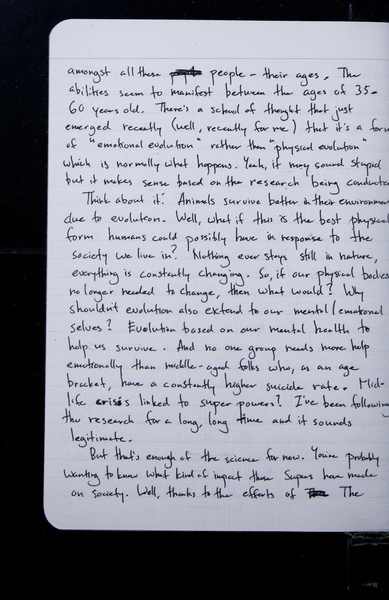 amongst all these people - their ages. The
abilities seem to manifest between the ages of 35-
60 years old. There's a school of thought that just
emerged recently (well, recently for me) that it's a form
of "emotional evolution" rather than "physical evolution"
which is normally what happens. Yeah, it may sound stupid
but it makes sense based on the research being conducted
Think about it: Animals survive better in their environment
due to evolution. Well, what if this is the best physical
form humans could possibly have in response to the
society we live in? Nothing ever stays still in nature,
everything is constantly changing. So, if our physical bodies
no longer needed to change, then what would? Why
shouldn't evolution also extend to our mental/emotional
selves? Evolution based on our mental health to
help us survive. And no one group needs more help
emotionally than middle-aged folks who, as an age
bracket, have a constantly higher suicide rate. Mid-
life crisis linked to super powers? I've been following
the research for a long, long time and it sounds
legitimate.
But that's enough of the science for now. You're probably
wanting to know what kind of impact these Supers have made
on society. Well, thanks to the efforts of The